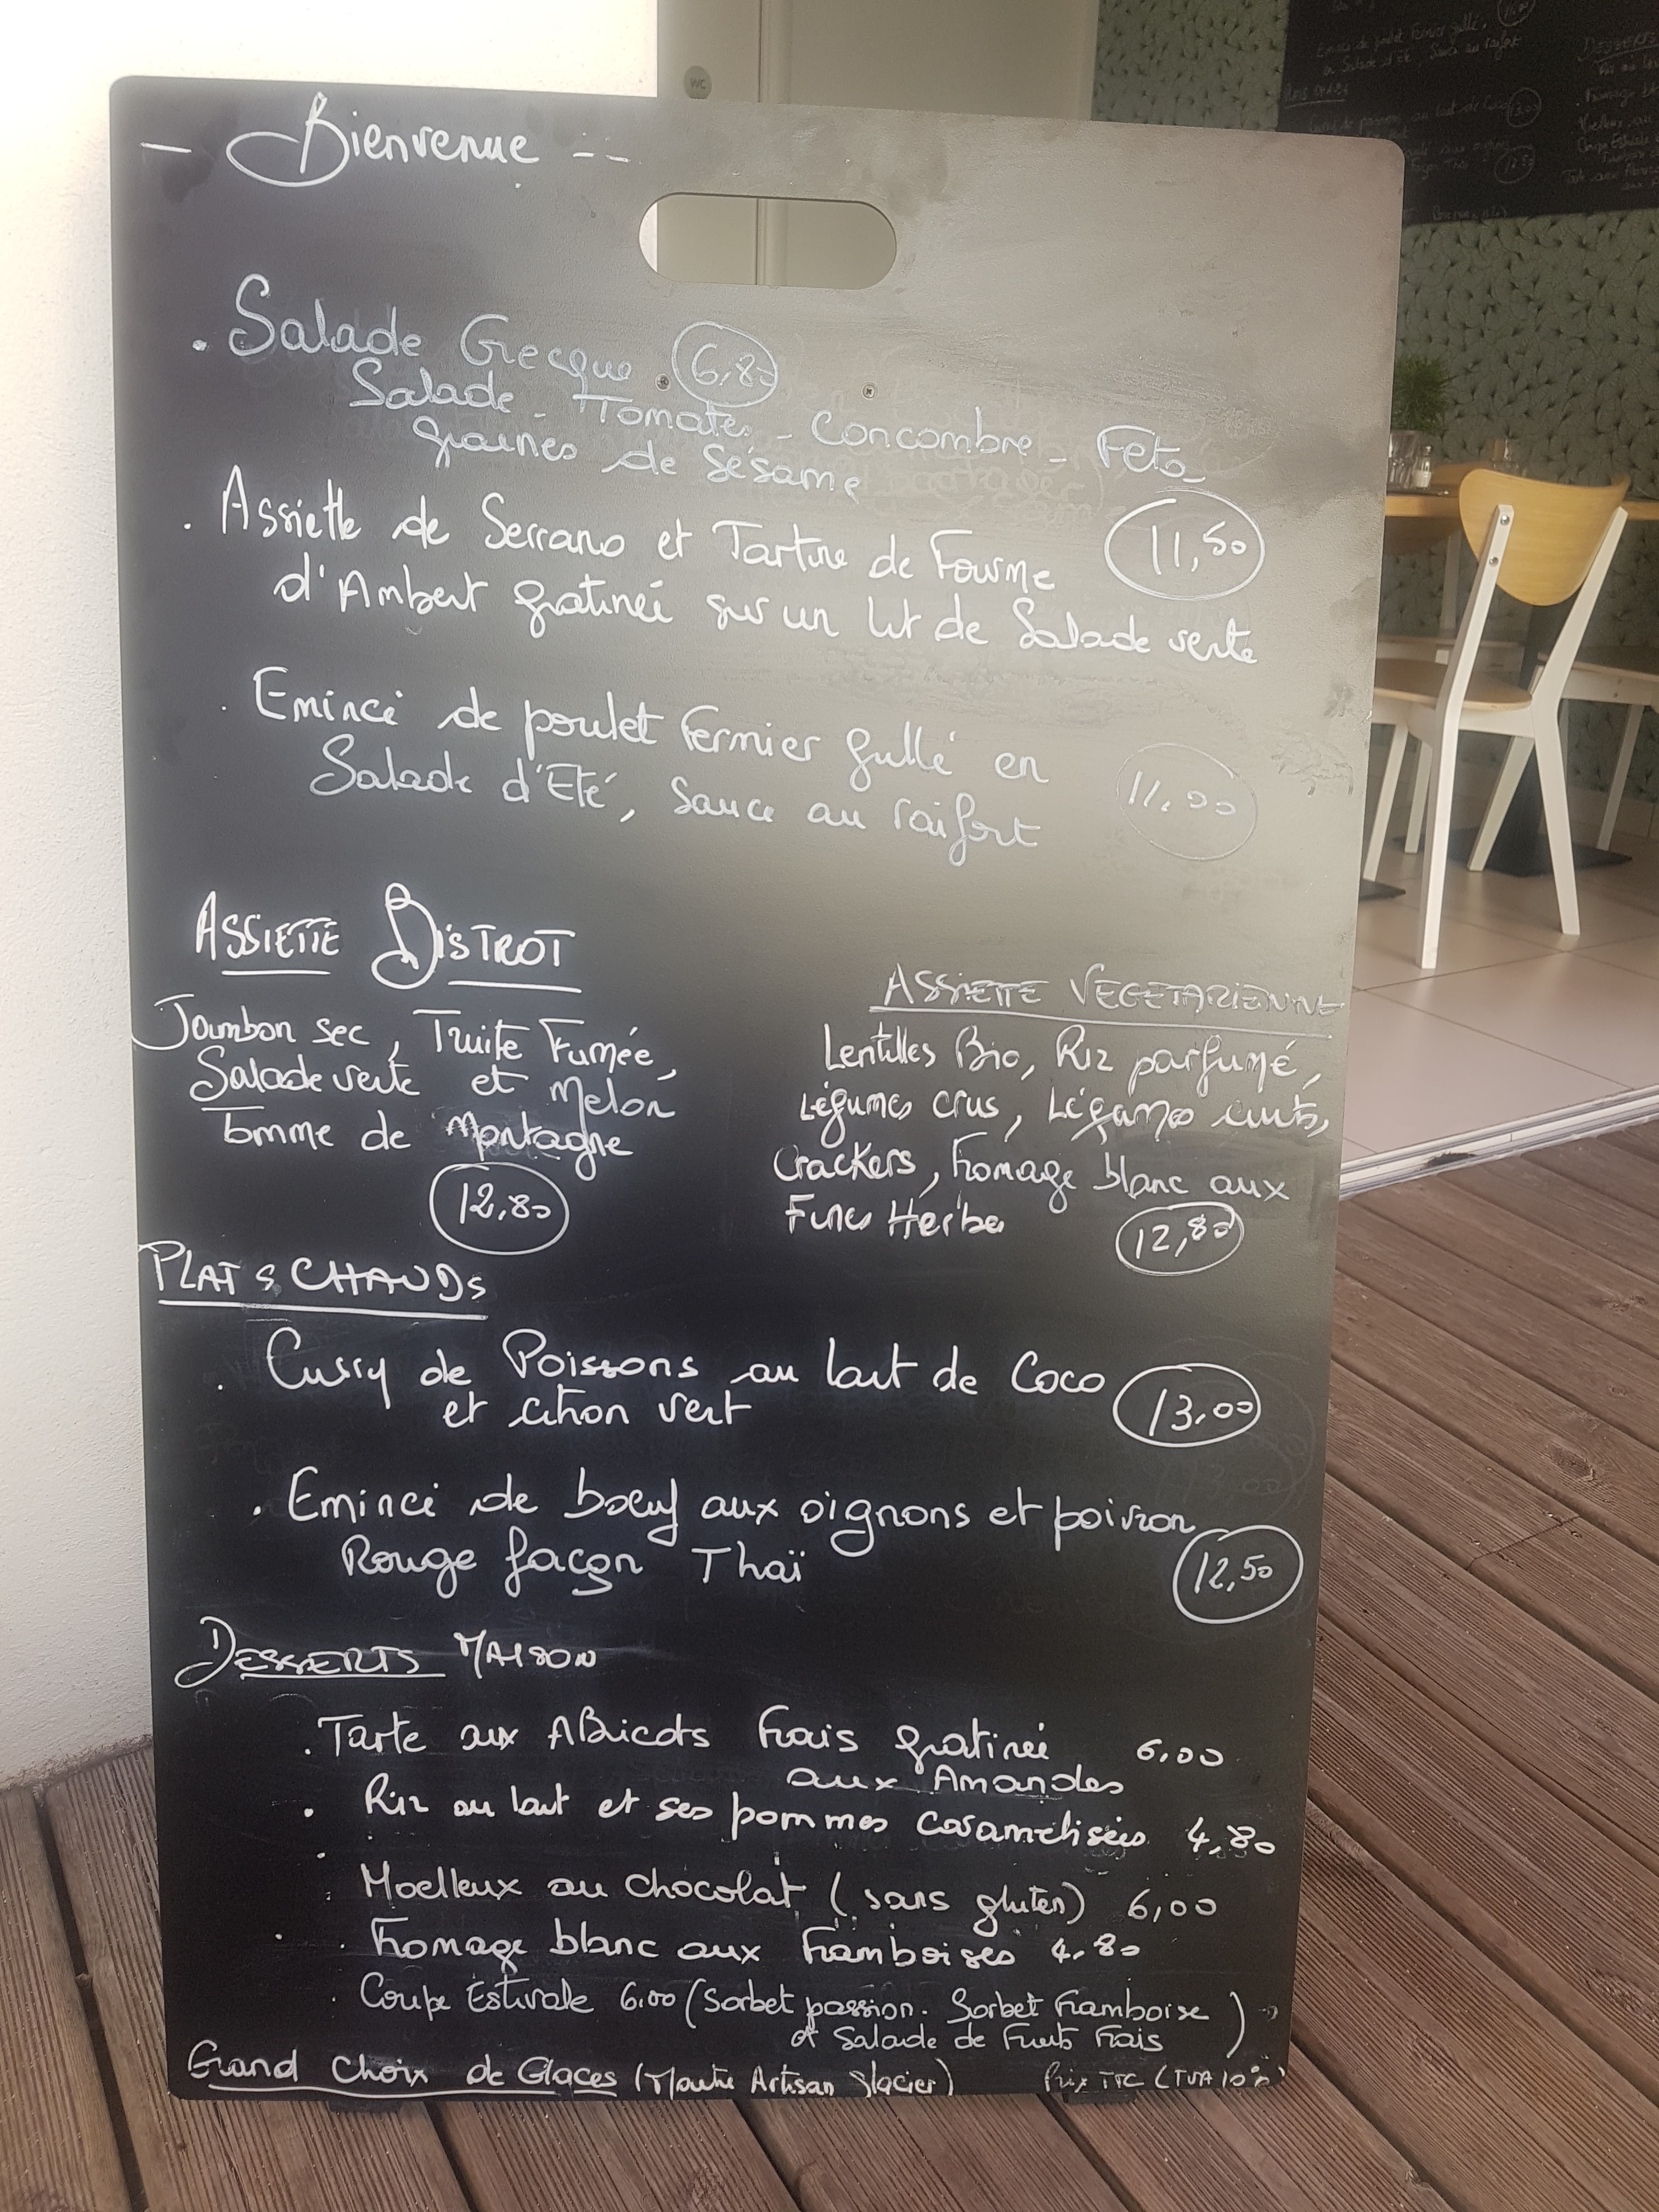 - Bienvenue --
. Salade Grecque 6,80
Salade - Tomates - Concombre - Feta -
graines de sésame
. Assiette de Serrano et Tartine de Fourme 11,50
d'Ambert gratinée sur un lit de Salade verte
. Emincé de poulet Fermier grillé en
Salade d'Eté, Sauce au raifort 11.00
ASSIETTE BISTROT
Jambon sec, Truite Fumée,
Salade verte et Melon
Tomme de Montagne
12,80
ASSIETTE VEGETARIENNE
Lentilles Bio, Riz parfumé,
Légumes crus, Légumes cuits,
Crackers, Fromage blanc aux
Fines Herbes 12,80
PLATS CHAUDS
. Curry de Poissons au lait de Coco 13,00
et citron vert
. Emincé de boeuf aux oignons et poivron
Rouge façon Thaï 12,50
DESSERTS MAISON
. Tarte aux ABricots Frais gratinée 6,00
aux Amandes
. Riz au lait et ses pommes caramélisées 4,80
. Moelleux au chocolat (sans gluten) 6,00
. Fromage blanc aux Framboises 4.80
. Coupe Estivale 6.00 (Sorbet passion. Sorbet Framboise
et Salade de Fruits Frais)
Grand Choix de Glaces (Maître Artisan glacier) Prix TTC (TVA 10%)
WC